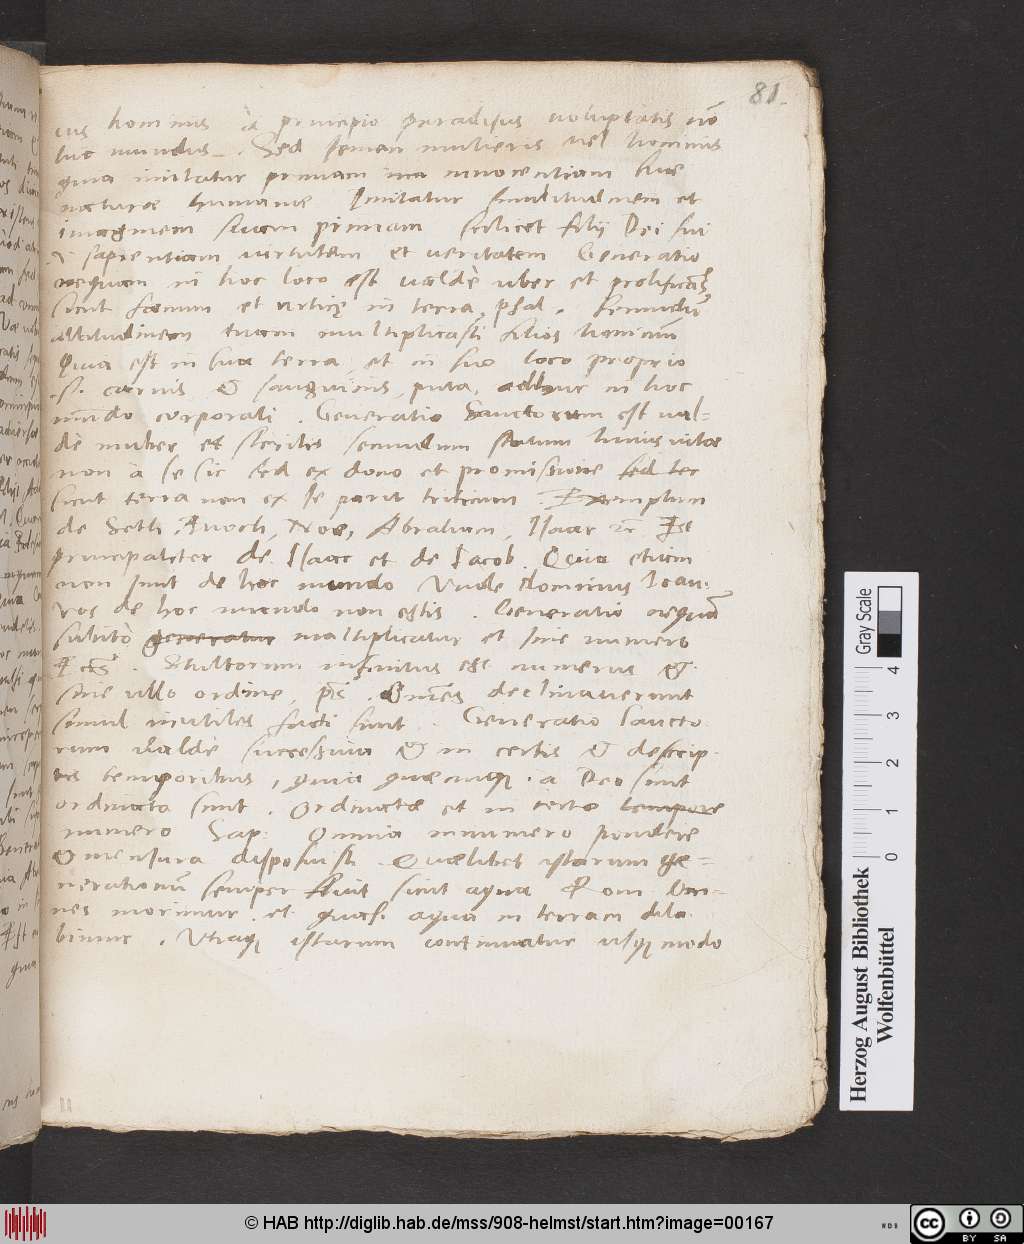 81.
ius hominis à principio paradisus voluptatis nō
hic mundus. Sed semen mulieris vel hominis
quia imitatur primam in innocentiam suae
naturae humanae Imitatur similitudinem et
imaginem suam primam scilicet filij Dei sui
sapientiam virtutem et veritatem Generatio
nequam in hoc loco est valdè uber et prolificans,
sicut foenum et urticę in terra, psal. secundū
altitudinem tuam multiplicasti filios hominū
Quia est in sua terra et in suo loco proprio
.s. carnis & sanguinis, puta, adhuc in hoc
mūdo corporali. Generatio Sanctorum est val=
dè et sterilis secundum statum huius vitae
non à se sic sed ex dono et promissione sed tec
sicut terra non ex se parit triticum. Exemplum
de Seth, Enoch, Noe, Abraham, Isaac &c. Et
principaliter de Isaac et de Iacob. Quia etiam
non sunt de hoc mundo Unde dominus Ioan.
vos de hoc mundo non estis. Generatio nequā
subitò generatur multiplicatur et sine numero
Eccs. Stultorum infinitus est numerus &
sine ullo ordine, ps. Omēs declinaverunt
simul inutiles facti sunt. Generatio sancto
rum valde successiva & in certis & descrip
tis temporibus, quia quaecunq. a Deo sunt
ordinata sunt. Ordinatae et in certo tempore
numero Sap: Omnia in numero pondere
& mensura disposuisti. Quaelibet istarum ge=
nerationū semper fluit sicut aqua Rom Om=
nes morimur et quasi aqua in terram dila
bimur. Utraq istarum continuatur usq modo
Herzog August Bibliothek
Wolfenbüttel
Gray Scale
0 1 2 3 4
© HAB http://diglib.hab.de/mss/908-helmst/start.htm?image=00167
WDB
cc BY SA